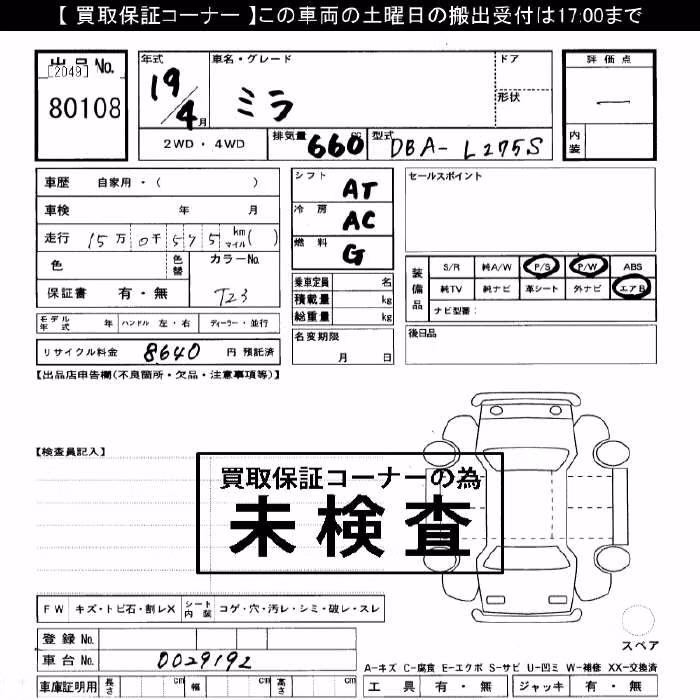 【 買取保証コーナー 】この車両の土曜日の搬出受付は17:00まで
出品No.
[2049]
80108
年式
19/4月
車名・グレード
ミラ
ドア
形状
評価点
—
内装
2WD・4WD
排気量 660 cc
型式 DBA-L275S
車歴 自家用・( )
車検 年 月
走行 15万0千575 km マイル( )
色
色替
カラーNo.
T23
保証書 有・無
モデル年式 年
ハンドル 左・右
ディーラー・並行
リサイクル料金 8640 円 預託済
シフト AT
冷房 AC
燃料 G
乗車定員 名
積載量 kg
総重量 kg
名変期限
月 日
セールスポイント
装備品
S/R 純A/W P/S P/W ABS
純TV 純ナビ 革シート 外ナビ エアB
ナビ型番：
後日品
【出品店申告欄(不良箇所・欠品・注意事項等)】
【検査員記入】
買取保証コーナーの為
未検査
FW キズ・トビ石・割レX
シート内装 コゲ・穴・汚レ・シミ・破レ・スレ
登録No.
車台No. 0029192
車庫証明用 長さ cm 幅 cm 高さ cm
スペア
A-キズ C-腐食 E-エクボ S-サビ U-凹ミ W-補修 XX-交換済
工具 有・無 ジャッキ 有・無